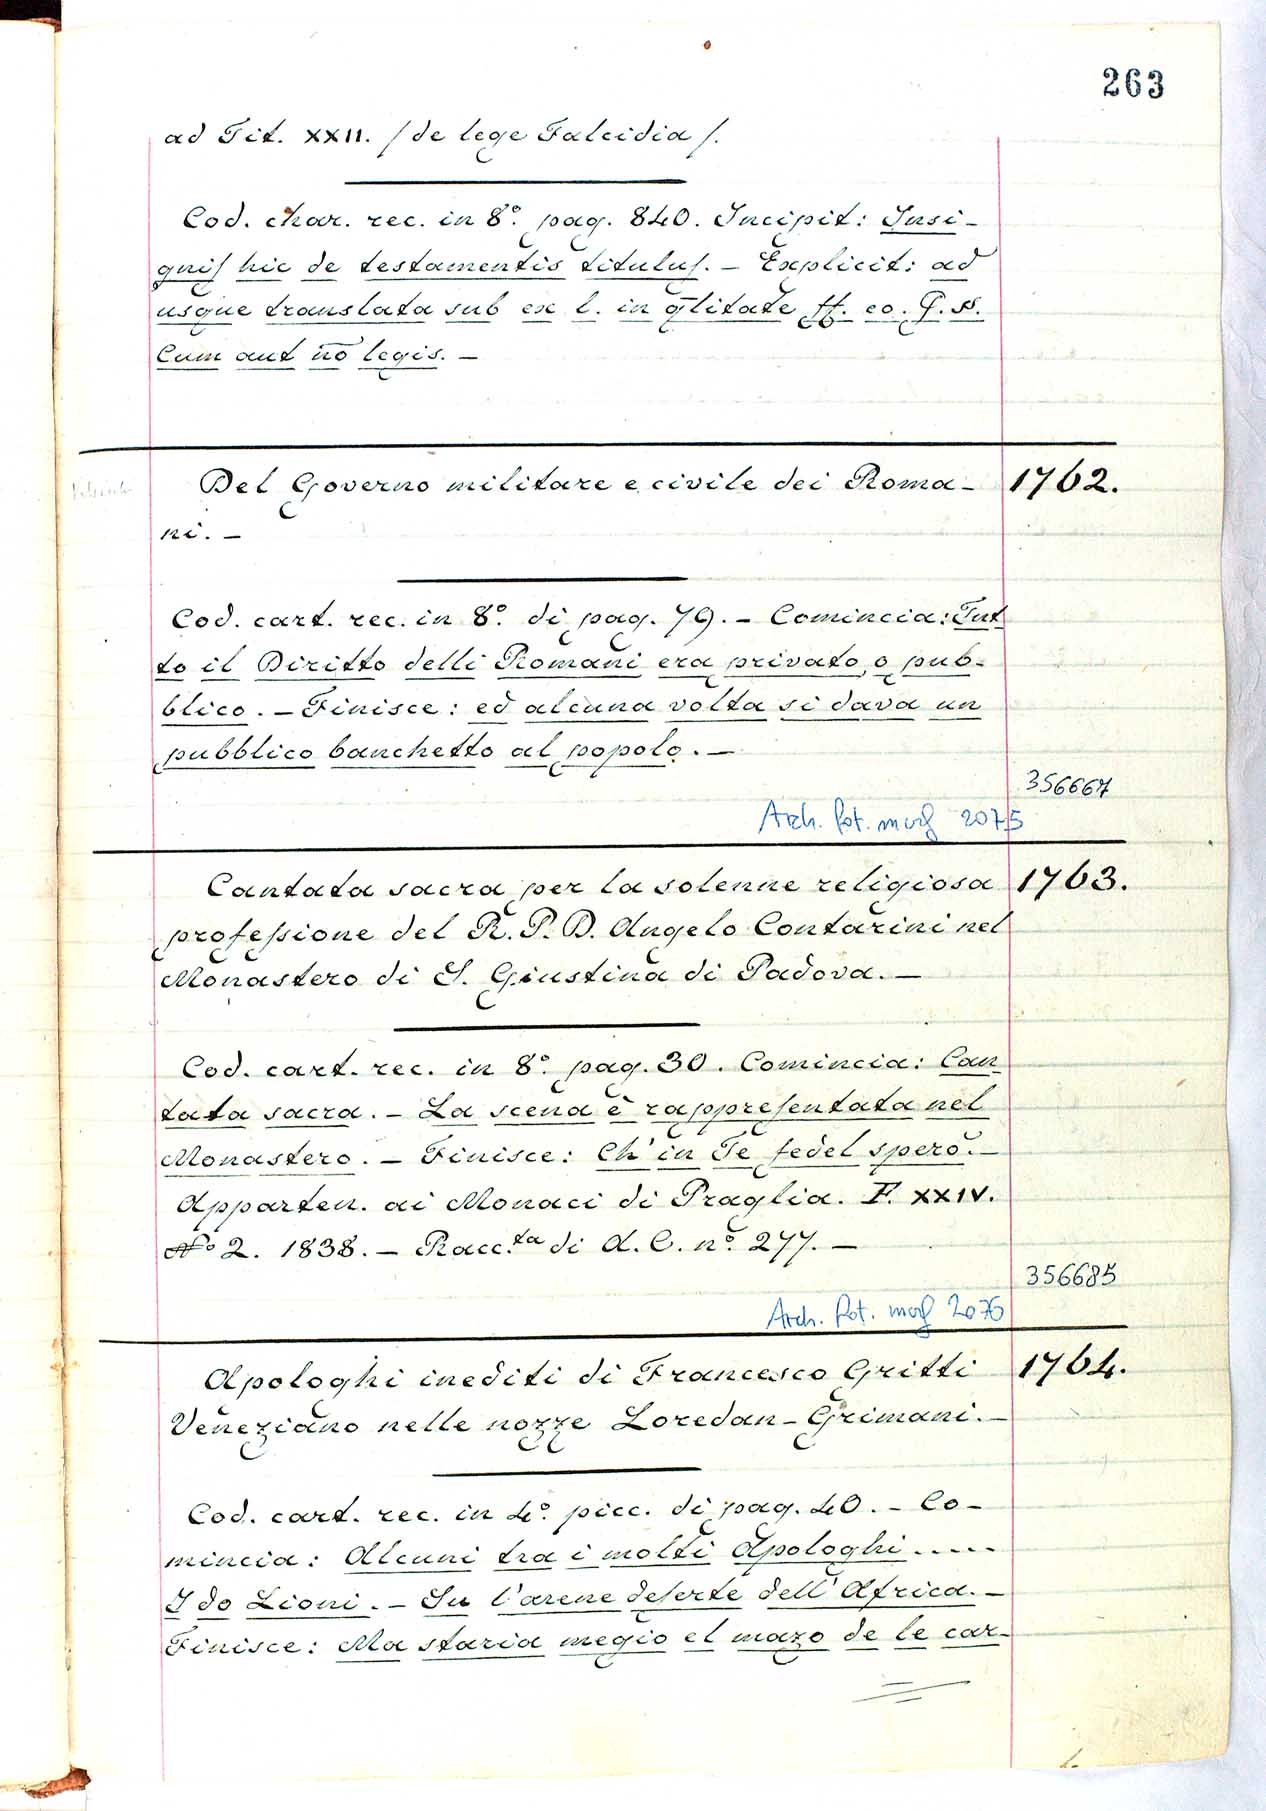 263
ad Tit. XXII. / de lege Falcidia /.
Cod. char. rec. in 8º. pag. 840. Incipit: Insi-
gnis hic de testamentis titulus. - Explicit: ad
usque translata sub ex l. in qlitate ff. eo.
Cum aut nō legis. -
Del Governo militare e civile dei Roma- 1762.
ni. -
Cod. cart. rec. in 8º. di pag. 79. - Comincia: Tut
to il Diritto delli Romani era privato, o pub-
blico. - Finisce: ed alcuna volta si dava un
pubblico banchetto al popolo. -
356667
Arch. fot. marc 2075
Cantata sacra per la solenne religiosa 1763.
professione del R. P. D. Angelo Contarini nel
Monastero di S. Giustina di Padova. -
Cod. cart. rec. in 8º. pag. 30. Comincia: Can
tata sacra. - La scena è rappresentata nel
Monastero. - Finisce: Ch'in Te fedel sperò. -
Apparten. ai Monaci di Praglia. F. XXIV.
Nº 2. 1838. - Racc.ta di A. C. nº. 277. -
356685
Arch. fot. marc 2076
Apologhi inediti di Francesco Gritti 1764.
Veneziano nelle nozze Loredan-Grimani. -
Cod. cart. rec. in 4º. picc. di pag. 40. - Co-
mincia: Alcuni tra i molti Apologhi.....
I do Lioni. - Su l'arene deserte dell'Africa. -
Finisce: Ma staria megio el mazo de le car-